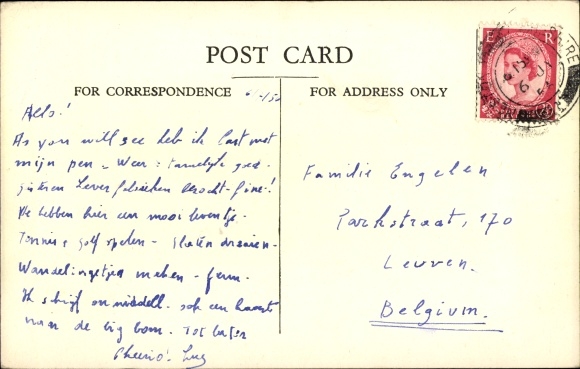 POST CARD
FOR CORRESPONDENCE
FOR ADDRESS ONLY
E R
Allo!
As you will see heb ik last met
mijn pen - Weer: tamelijk goed -
gisteren Lever fabrieken bezocht - fine!
We hebben hier een mooi leventje.
Tennis & golf spelen - platen draaien -
Wandelingetjes maken - farm.
Ik schrijf onmiddell. ook een kaart
van de big bom. Tot later
Cheerio! Luc
Familie Engelen
Parkstraat, 170
Leuven.
Belgium.